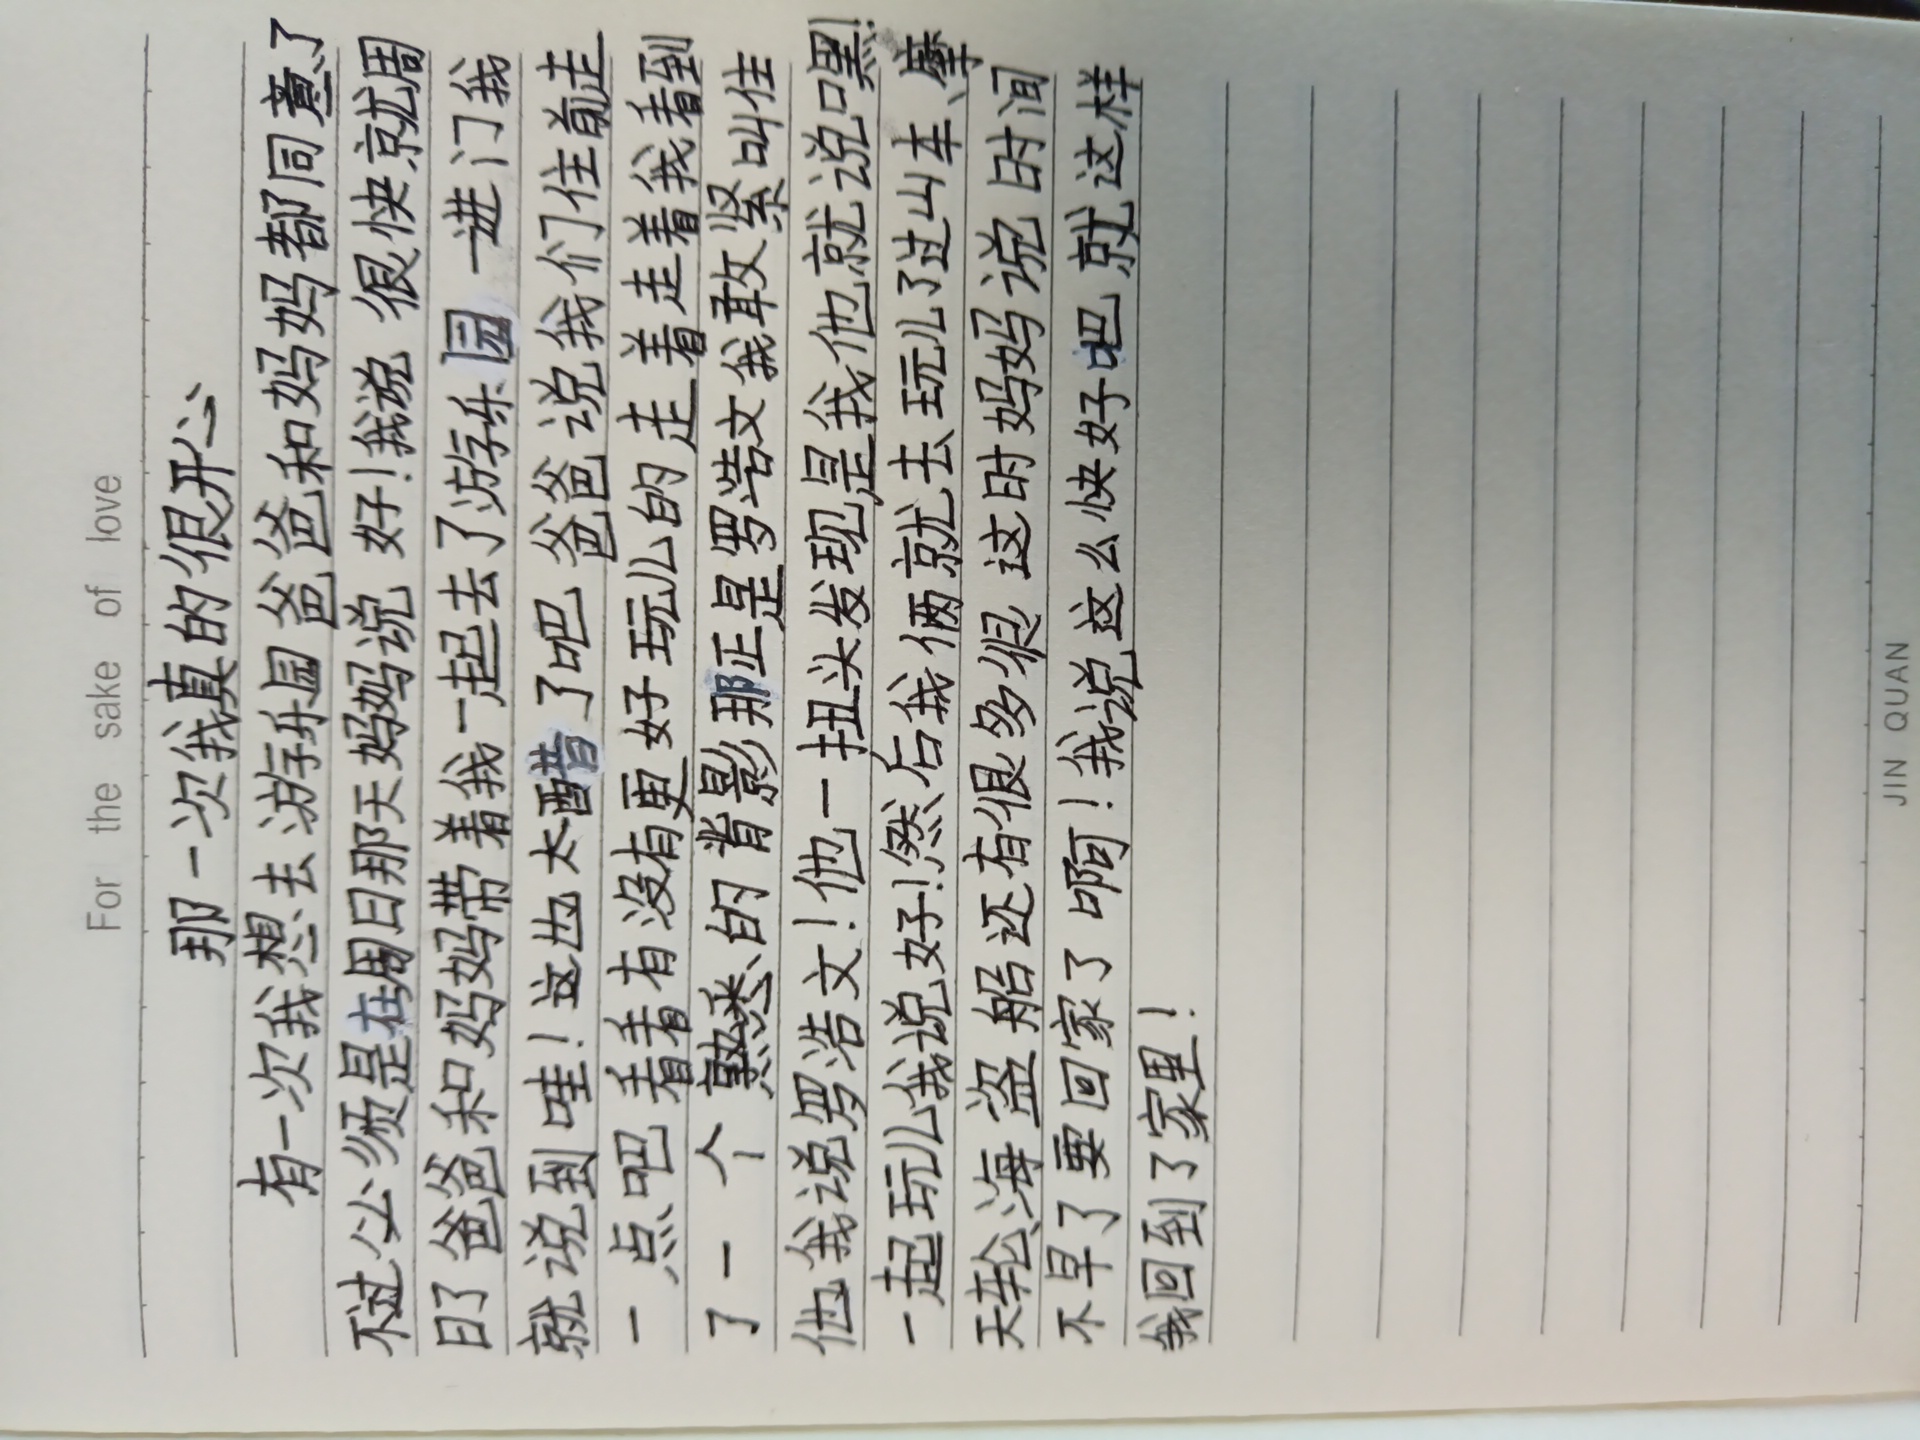 For the sake of love
那一次我真的很开心
有一次我想去游乐园爸爸和妈妈都同意了
不过公须是在周日那天妈妈说好!我说很快就周
日了爸爸和妈妈带着我一起去了游乐园一进门我
就说到哇!这也太醋了吧爸爸说我们住前走
一点吧看看有没有更好玩儿的走着走着我看到
了一个熟悉的背影那正是罗浩文我敢紧叫住
他我说罗浩文!他一扭头发现是我他就说嘿!
一起玩儿我说好!然后我俩就去玩儿了过山车、摩
天轮、海盗船还有很多很这时妈妈说时间
不早了要回家了啊!我说这么快好吧就这样
我回到了家里!
JIN QUAN